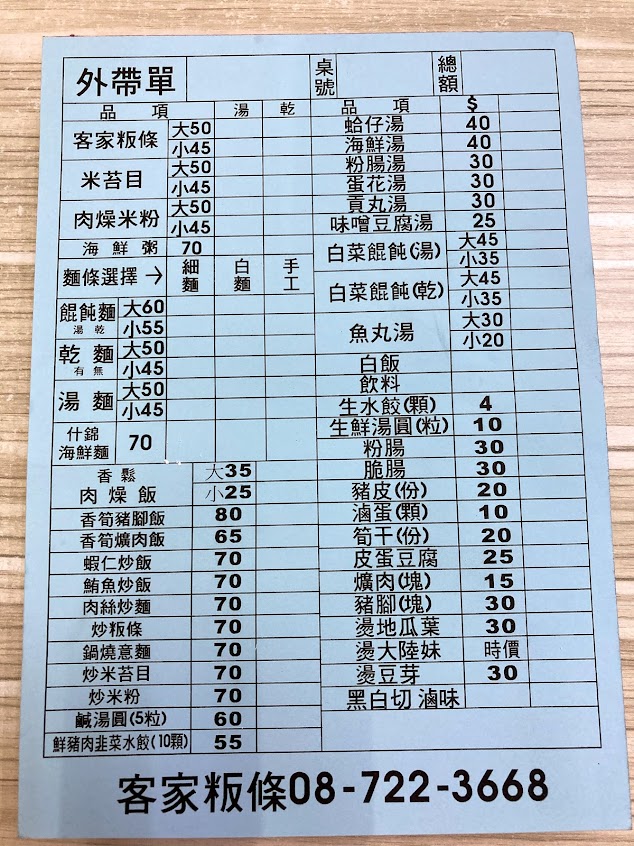 外帶單 桌號 總額
品項 湯 乾
客家粄條 大50
小45
米苔目 大50
小45
肉燥米粉 大50
小45
海鮮粥 70
麵條選擇→ 細麵 白麵 手工
餛飩麵 大60
湯 乾 小55
乾麵 大50
有 無 小45
湯麵 大50
小45
什錦海鮮麵 70
香鬆 大35
肉燥飯 小25
香筍豬腳飯 80
香筍爌肉飯 65
蝦仁炒飯 70
鮪魚炒飯 70
肉絲炒麵 70
炒粄條 70
鍋燒意麵 70
炒米苔目 70
炒米粉 70
鹹湯圓(5粒) 60
鮮豬肉韭菜水餃(10顆) 55
品項 $
蛤仔湯 40
海鮮湯 40
粉腸湯 30
蛋花湯 30
貢丸湯 30
味噌豆腐湯 25
白菜餛飩(湯) 大45
小35
白菜餛飩(乾) 大45
小35
魚丸湯 大30
小20
白飯
飲料
生水餃(顆) 4
生鮮湯圓(粒) 10
粉腸 30
脆腸 30
豬皮(份) 20
滷蛋(顆) 10
筍干(份) 20
皮蛋豆腐 25
爌肉(塊) 15
豬腳(塊) 30
燙地瓜葉 30
燙大陸妹 時價
燙豆芽 30
黑白切 滷味
客家粄條08-722-3668